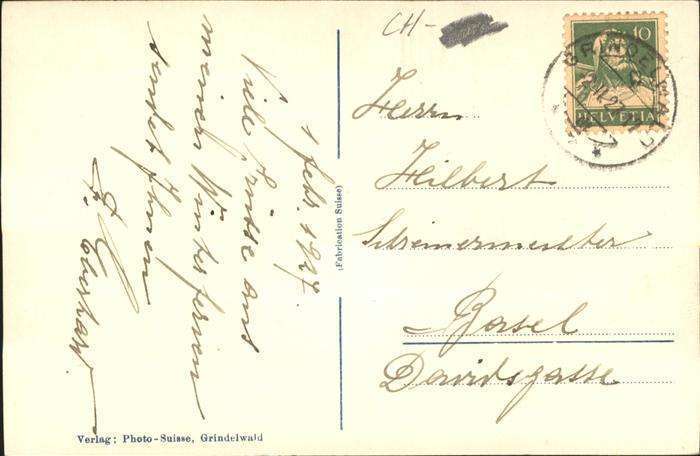 1 Febr. 1927.
Viele Grüsse aus
meinen Winterferien
sendet Ihnen
Eberhard
Verlag: Photo-Suisse, Grindelwald
(Fabrication Suisse)
CH-
10
HELVETIA
GRINDELWALD
Herrn
Hilbert
Schreinermeister
Basel
Davidsgasse